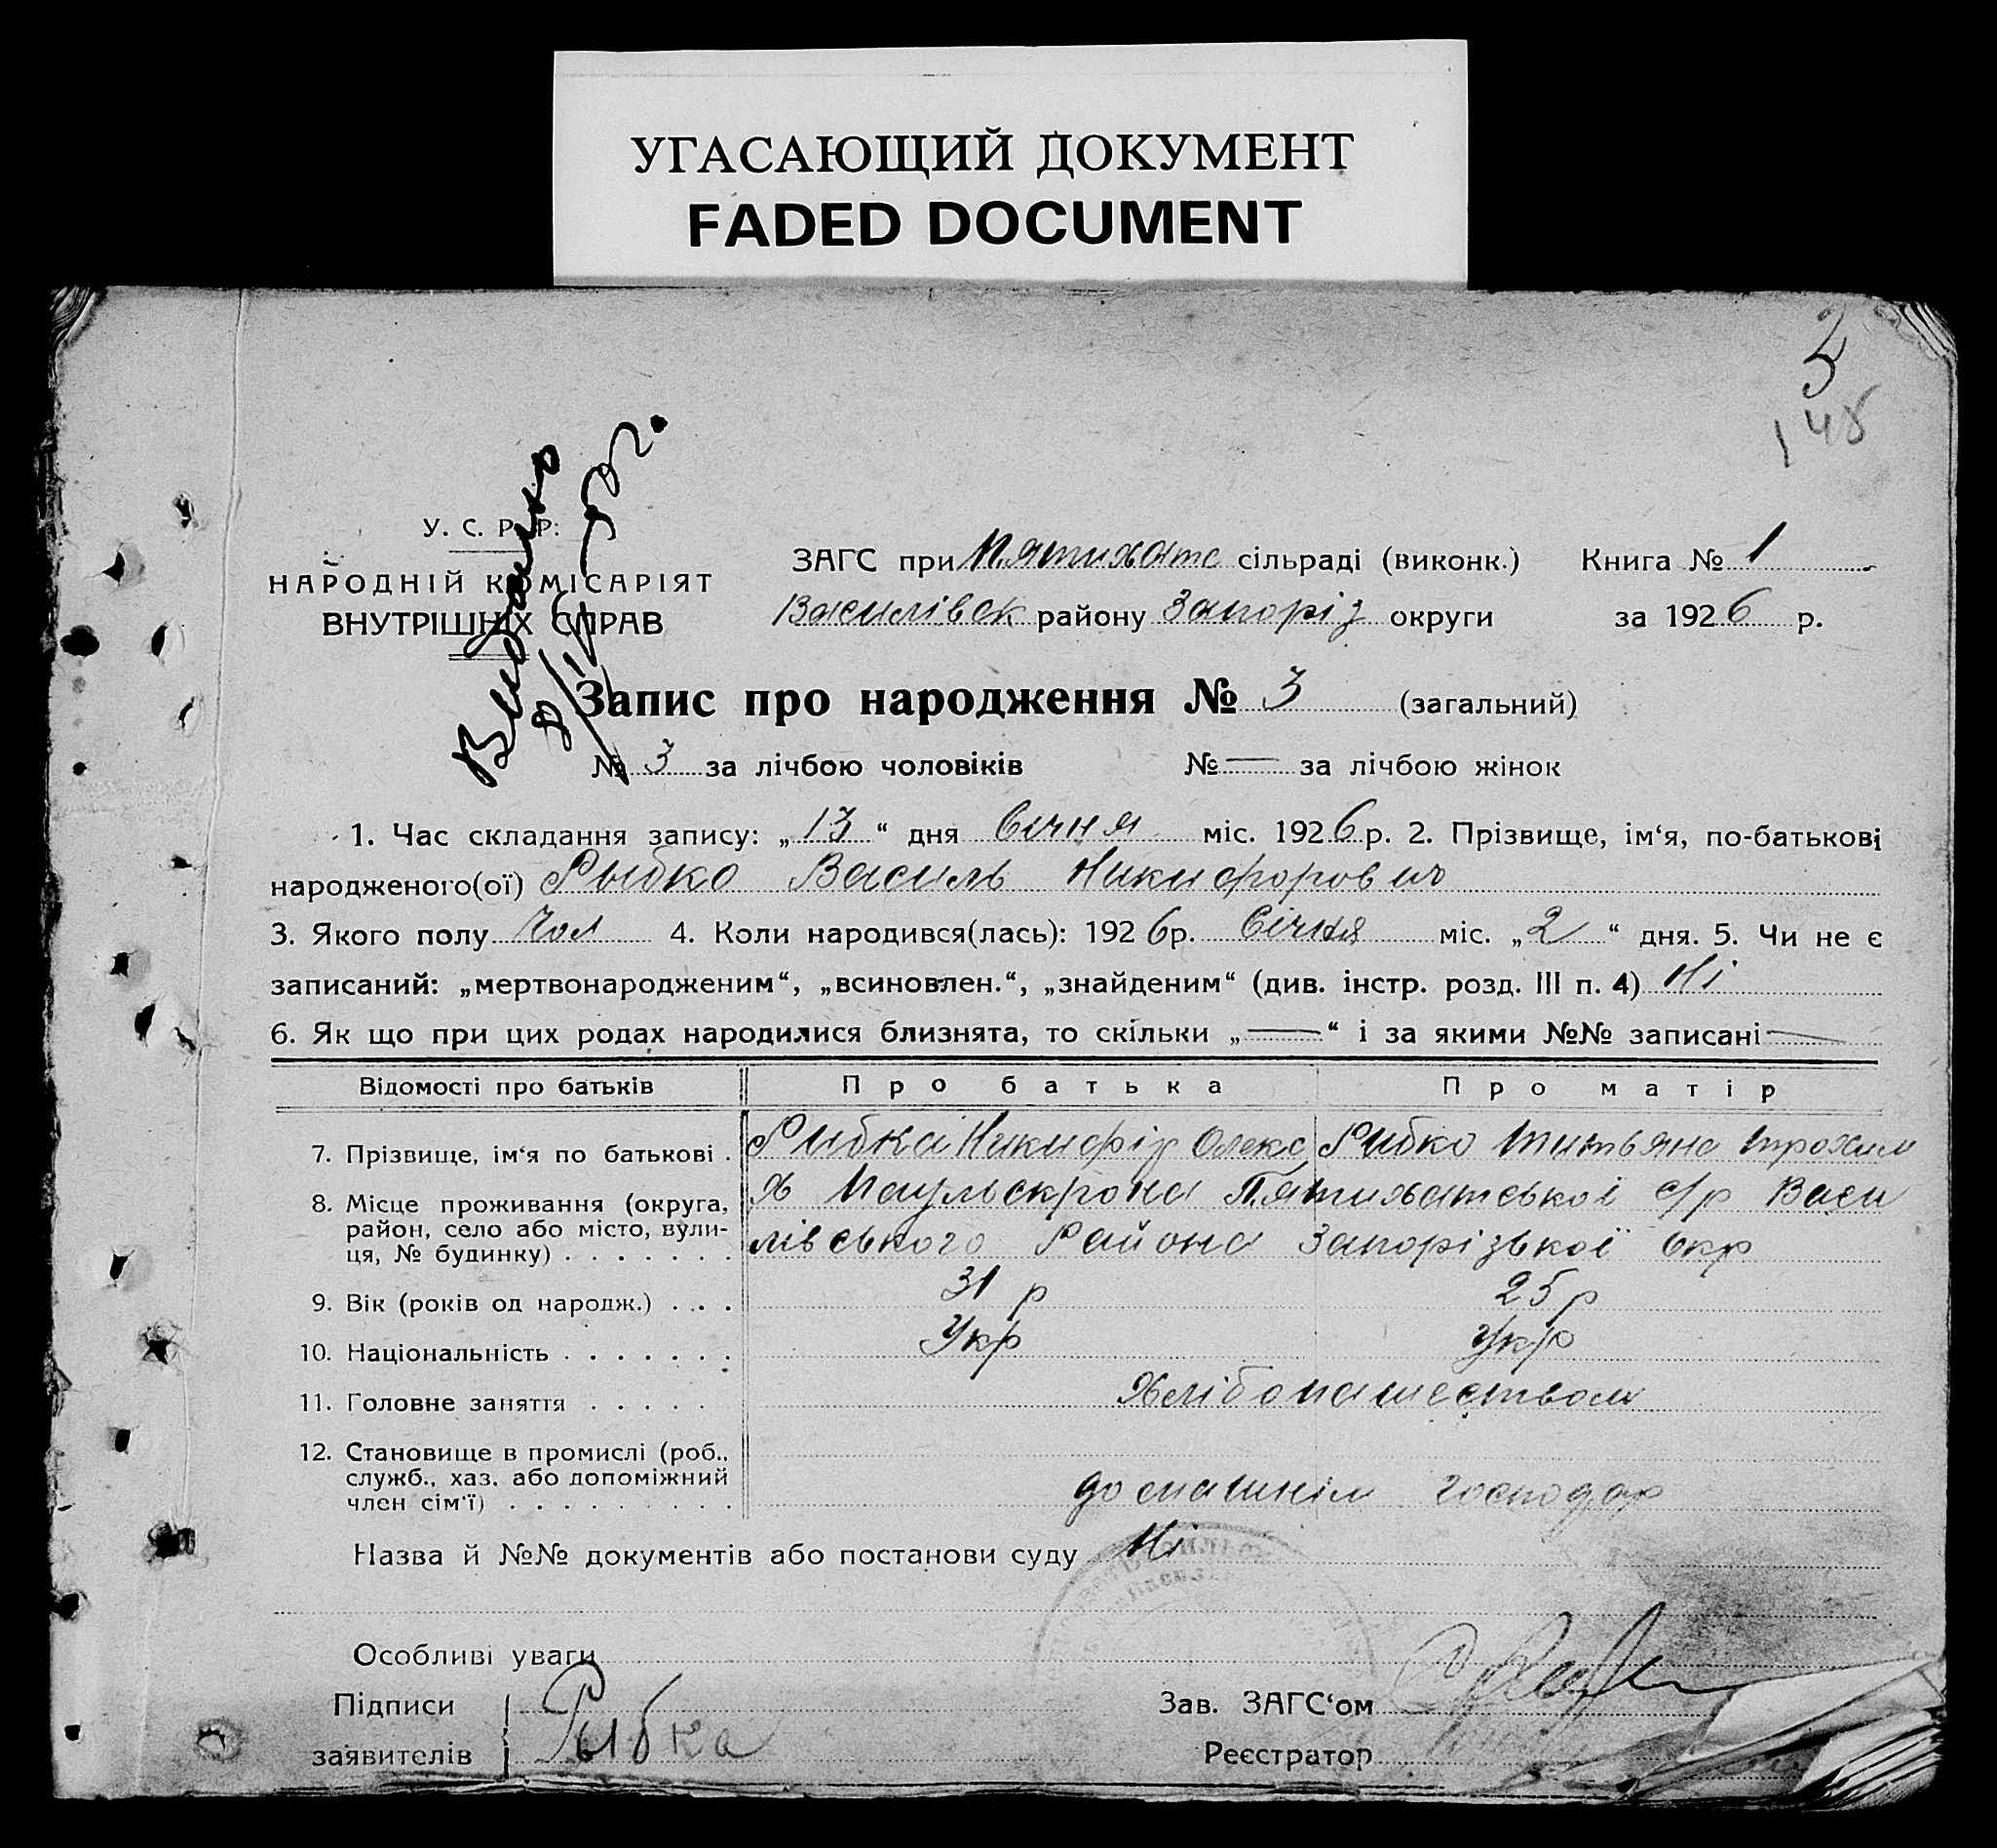 УГАСАЮЩИЙ ДОКУМЕНТ
FADED DOCUMENT
3
148
У. С. Р. Р.
НАРОДНІЙ КОМІСАРІЯТ
ВНУТРІШНІХ СПРАВ
Видано
ЗАГС при Пятихатс сільраді (виконк.) Книга № 1
Василівск району Запоріз округи за 1926 р.
Запис про народження № 3 (загальний)
№ 3 за лічбою чоловіків № — за лічбою жінок
1. Час складання запису: „13“ дня Січня міс. 1926 р. 2. Прізвище, ім‘я, по-батькові
народженого(ої) Рыбко Василь Никифорович
3. Якого полу Чол 4. Коли народився(лась): 1926р. Січня міс. „2“ дня. 5. Чи не є
записаний: „мертвонародженим“, „всиновлен.“, „знайденим“ (див. інстр. розд. III п. 4) Ні
6. Як що при цих родах народилися близнята, то скільки „—“ і за якими №№ записані —
Відомості про батьків Про батька Про матір
7. Прізвище, ім‘я по батькові . Рибка Никифір Олекс Рибко Титьяна Трохим
8. Місце проживання (округа, район, село або місто, вулиця, № будинку) . . . . . . . Х Паульскрона Пятихатської с/р Васи
лівського Района Запорізької Окр
9. Вік (років од народж.) . . . 31 р 25 р
10. Національність . . . . . . . Укр Укр
11. Головне заняття . . . . . Хлібопашеством
12. Становище в промислі (роб.,
служб., хаз. або допоміжний
член сім‘ї) . . . . . . . . . домашнім господар
Назва й №№ документів або постанови суду Ні
Особливі уваги
Підписи
заявителів Рыбка
Зав. ЗАГС‘ом
Реєстратор